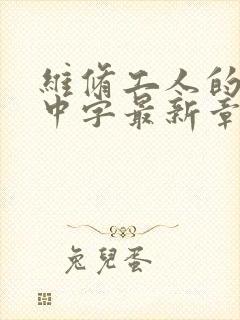 維脩工人的
中字最新章
兔兒蛋